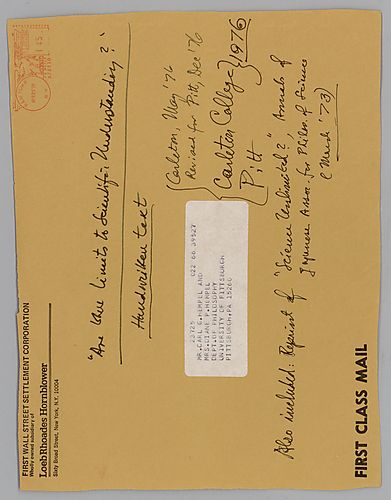 FIRST WALL STREET SETTLEMENT CORPORATION
Wholly owned subsidiary of
Loeb Rhoades Hornblower
Sixty Broad Street, New York, N.Y. 10004
"Are there limits to Scientific Understanding?"
Handwritten text
(Carleton, May '76
Revised for Pitt, Dec '76
Carleton College } 1976
Pitt
23725 C22 66 39527
MR. CARL G. HEMPEL AND
MRS. DIANE P. HEMPEL
DEPT. OF PHILOSOPHY
UNIVERSITY OF PITTSBURGH
PITTSBURGH, PA 15260
Also included: Reprint of "Science Unlimited?", Annals of
Japanese Assoc. for Philos. of Science
(March '73)
FIRST CLASS MAIL